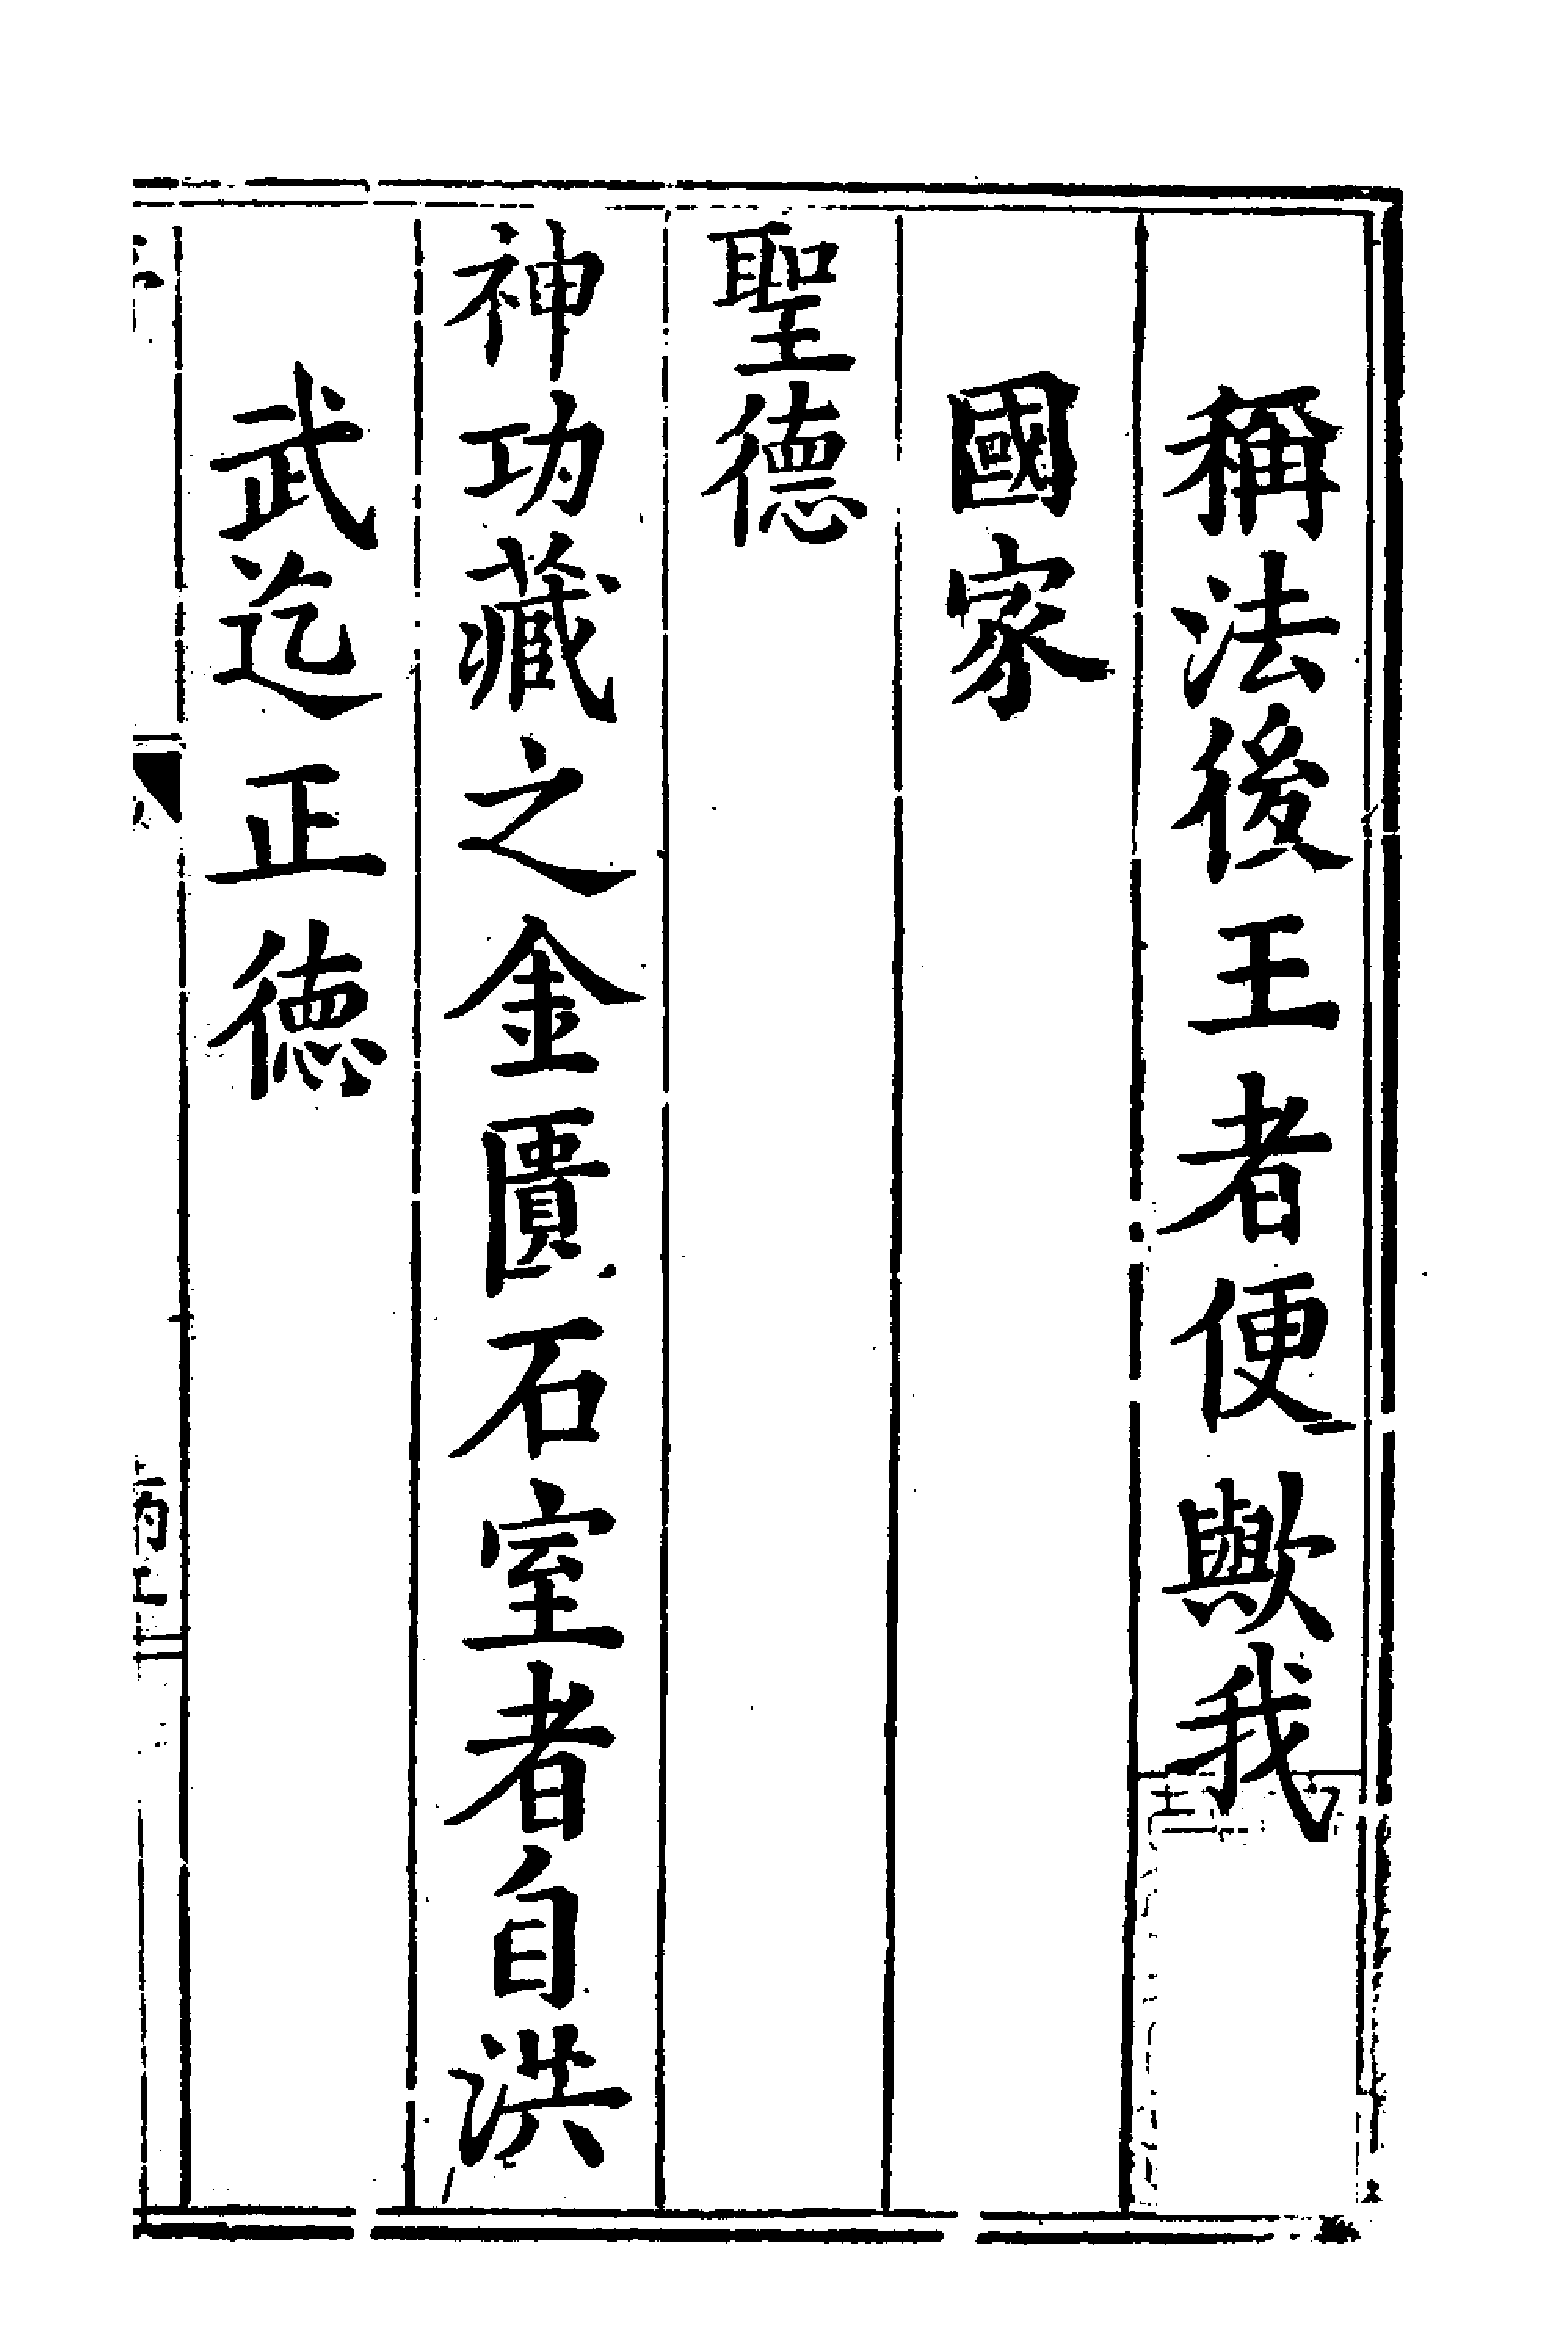 稱法後王者便歟我
國家
聖德
神功藏之金匱石室者自洪
武迄正德